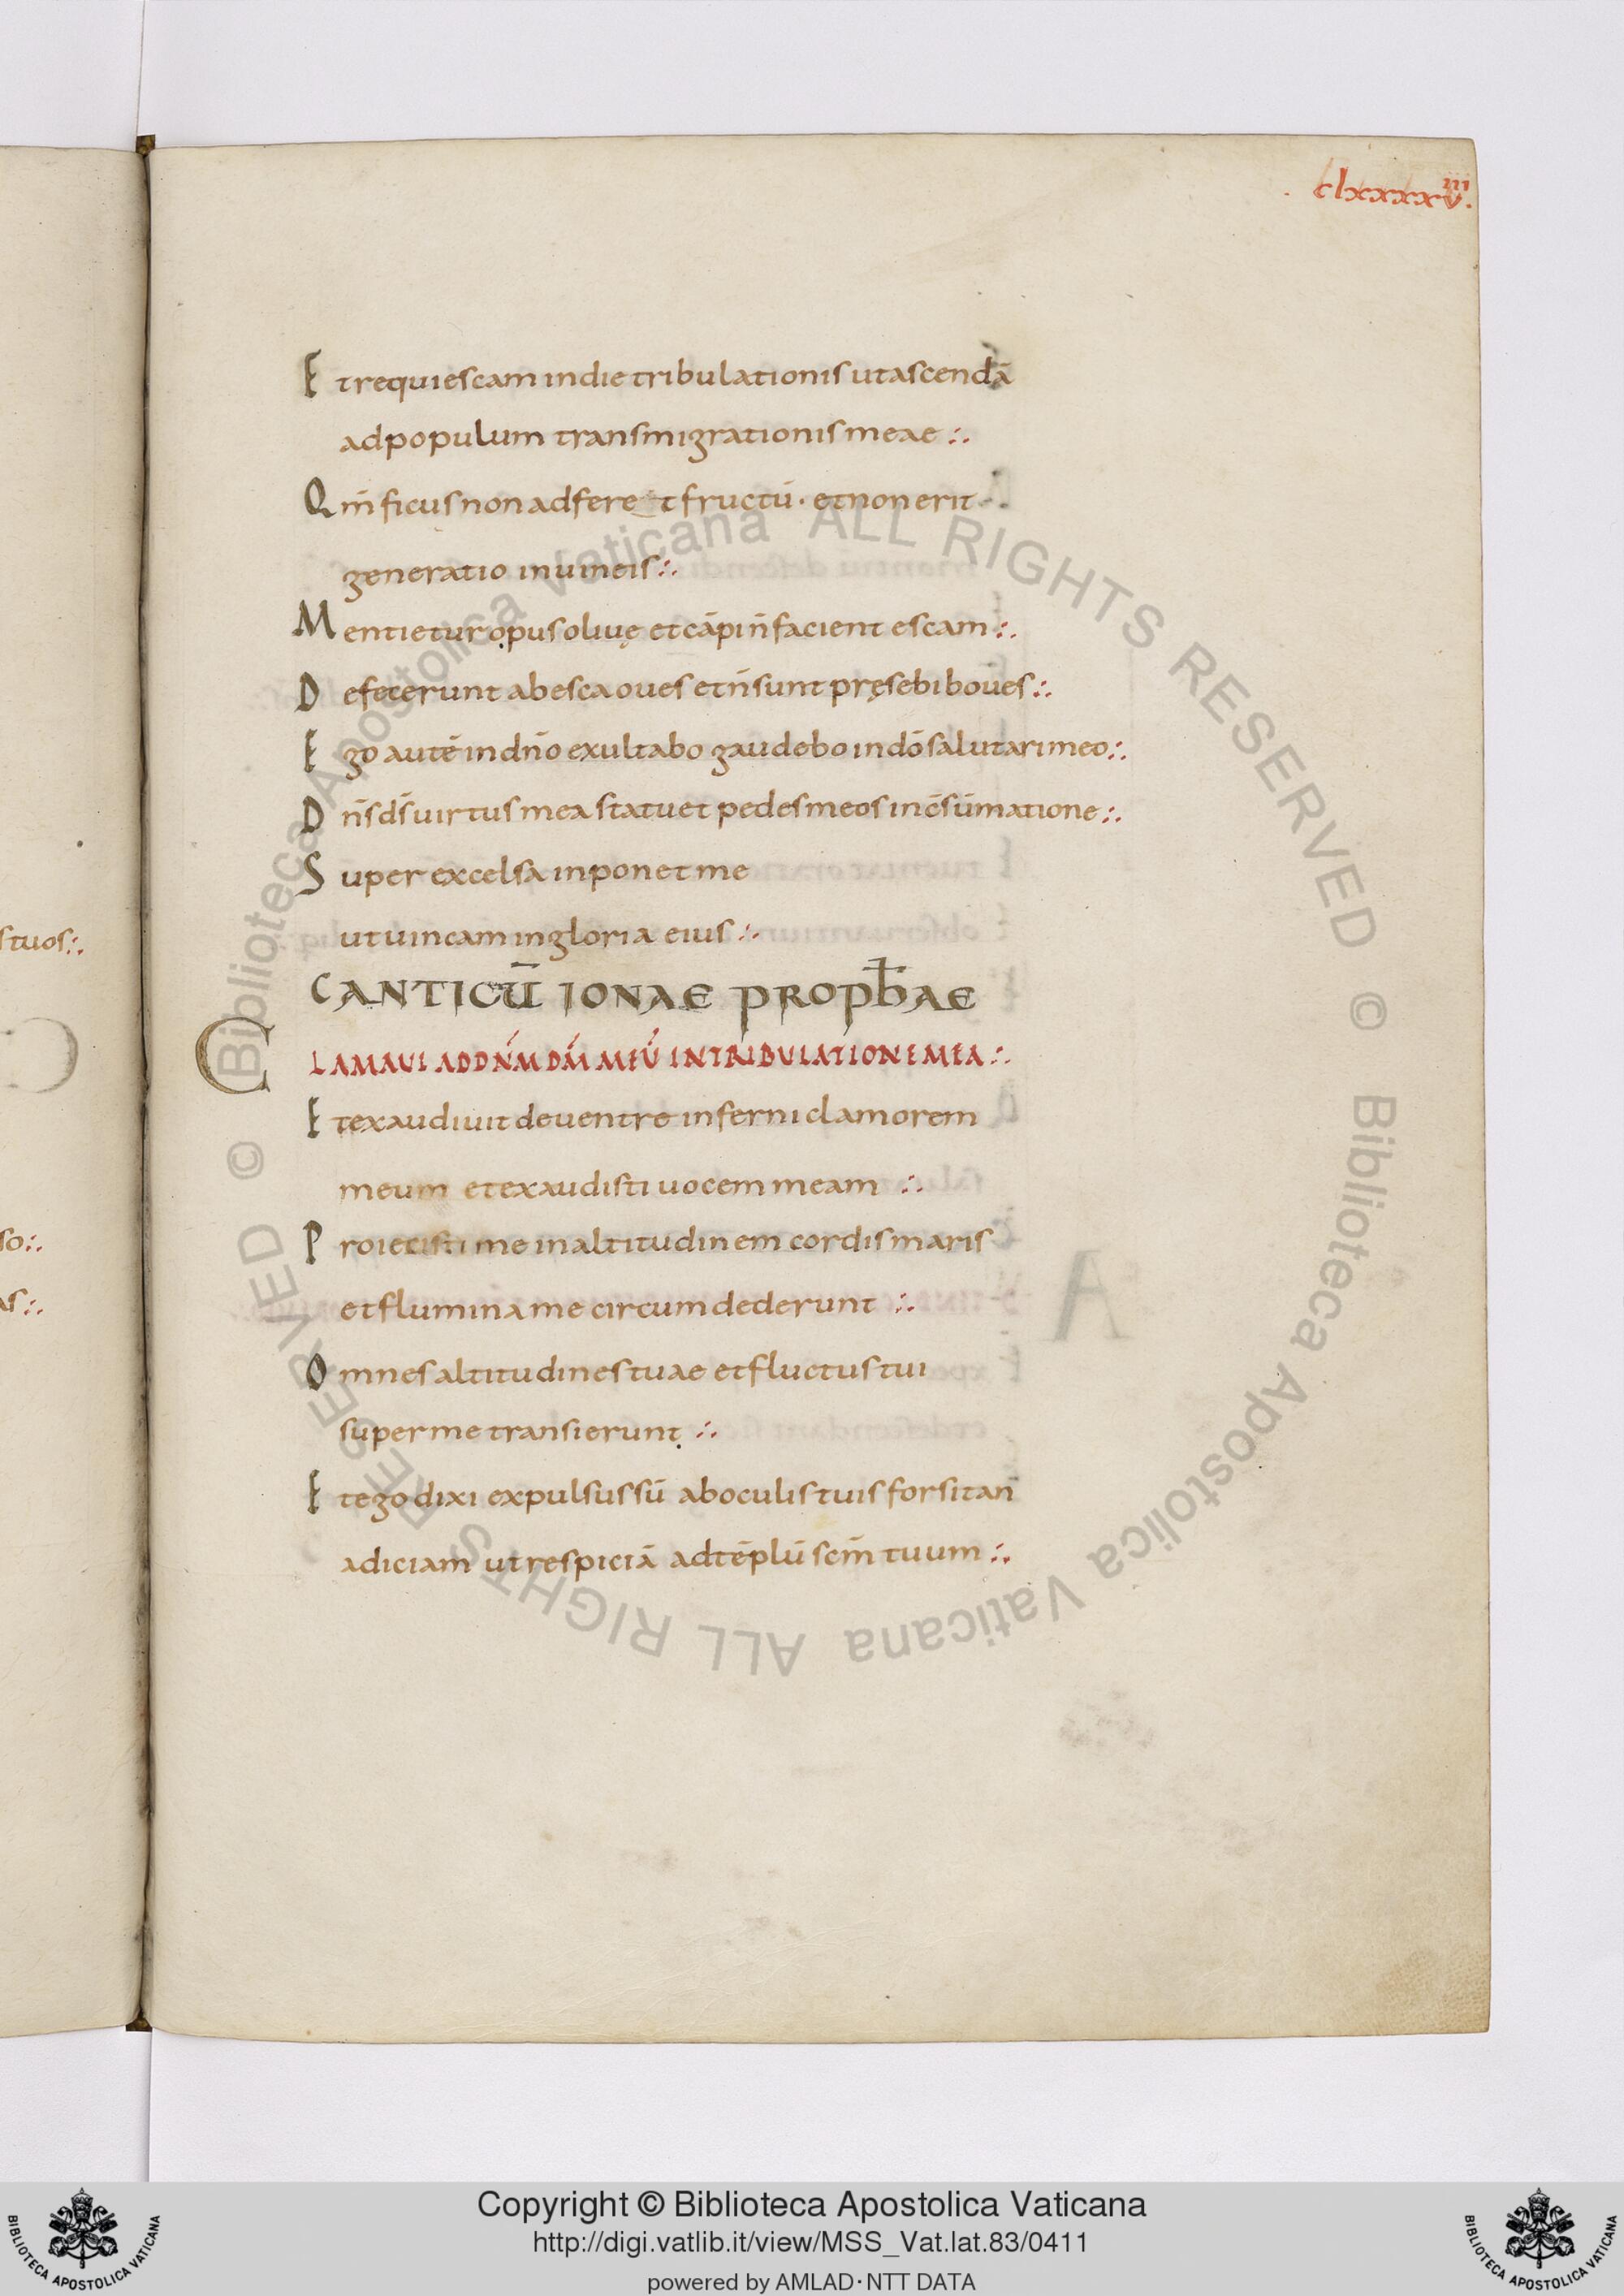 clxxxxviii.
Et requiescam in die tribulationis ut ascendā
ad populum transmigrationis meae :.
Qm̄ ficus non adferet fructū · et non erit
generatio in uineis :.
Mentietur opus oliuę et cāpi n̄ facient escam :.
Defecerunt ab esca oues et n̄ sunt pręsebi boues :.
Ego autē in dn̄o exultabo gaudebo in dō salutari meo :.
Dn̄s d̄s uirtus mea statuet pedes meos in c̄sūmatione :.
Super excelsa inponet me
ut uincam in gloria eius :.
CANTICŪ IONAE PROPH̄AE
CLAMAUI AD DN̄M DM̄ MEŪ IN TRIBULATIONE MEA :.
Et exaudiuit de uentre inferni clamorem
meum et exaudisti uocem meam :.
Proiecisti me in altitudinem cordis maris
et flumina me circumdederunt :.
Omnes altitudines tuae et fluctus tui
super me transierunt :.
Et ego dixi expulsus sū ab oculis tuis forsitan
adiciam ut respiciā ad tēplū scm̄ tuum :.
stuos :.
so :.
as :.
© Biblioteca Apostolica Vaticana ALL RIGHTS RESERVED © Biblioteca Apostolica Vaticana ALL RIGHTS RESERVED
Copyright © Biblioteca Apostolica Vaticana
http://digi.vatlib.it/view/MSS_Vat.lat.83/0411
powered by AMLAD·NTT DATA
BIBLIOTECA APOSTOLICA VATICANA
BIBLIOTECA APOSTOLICA VATICANA